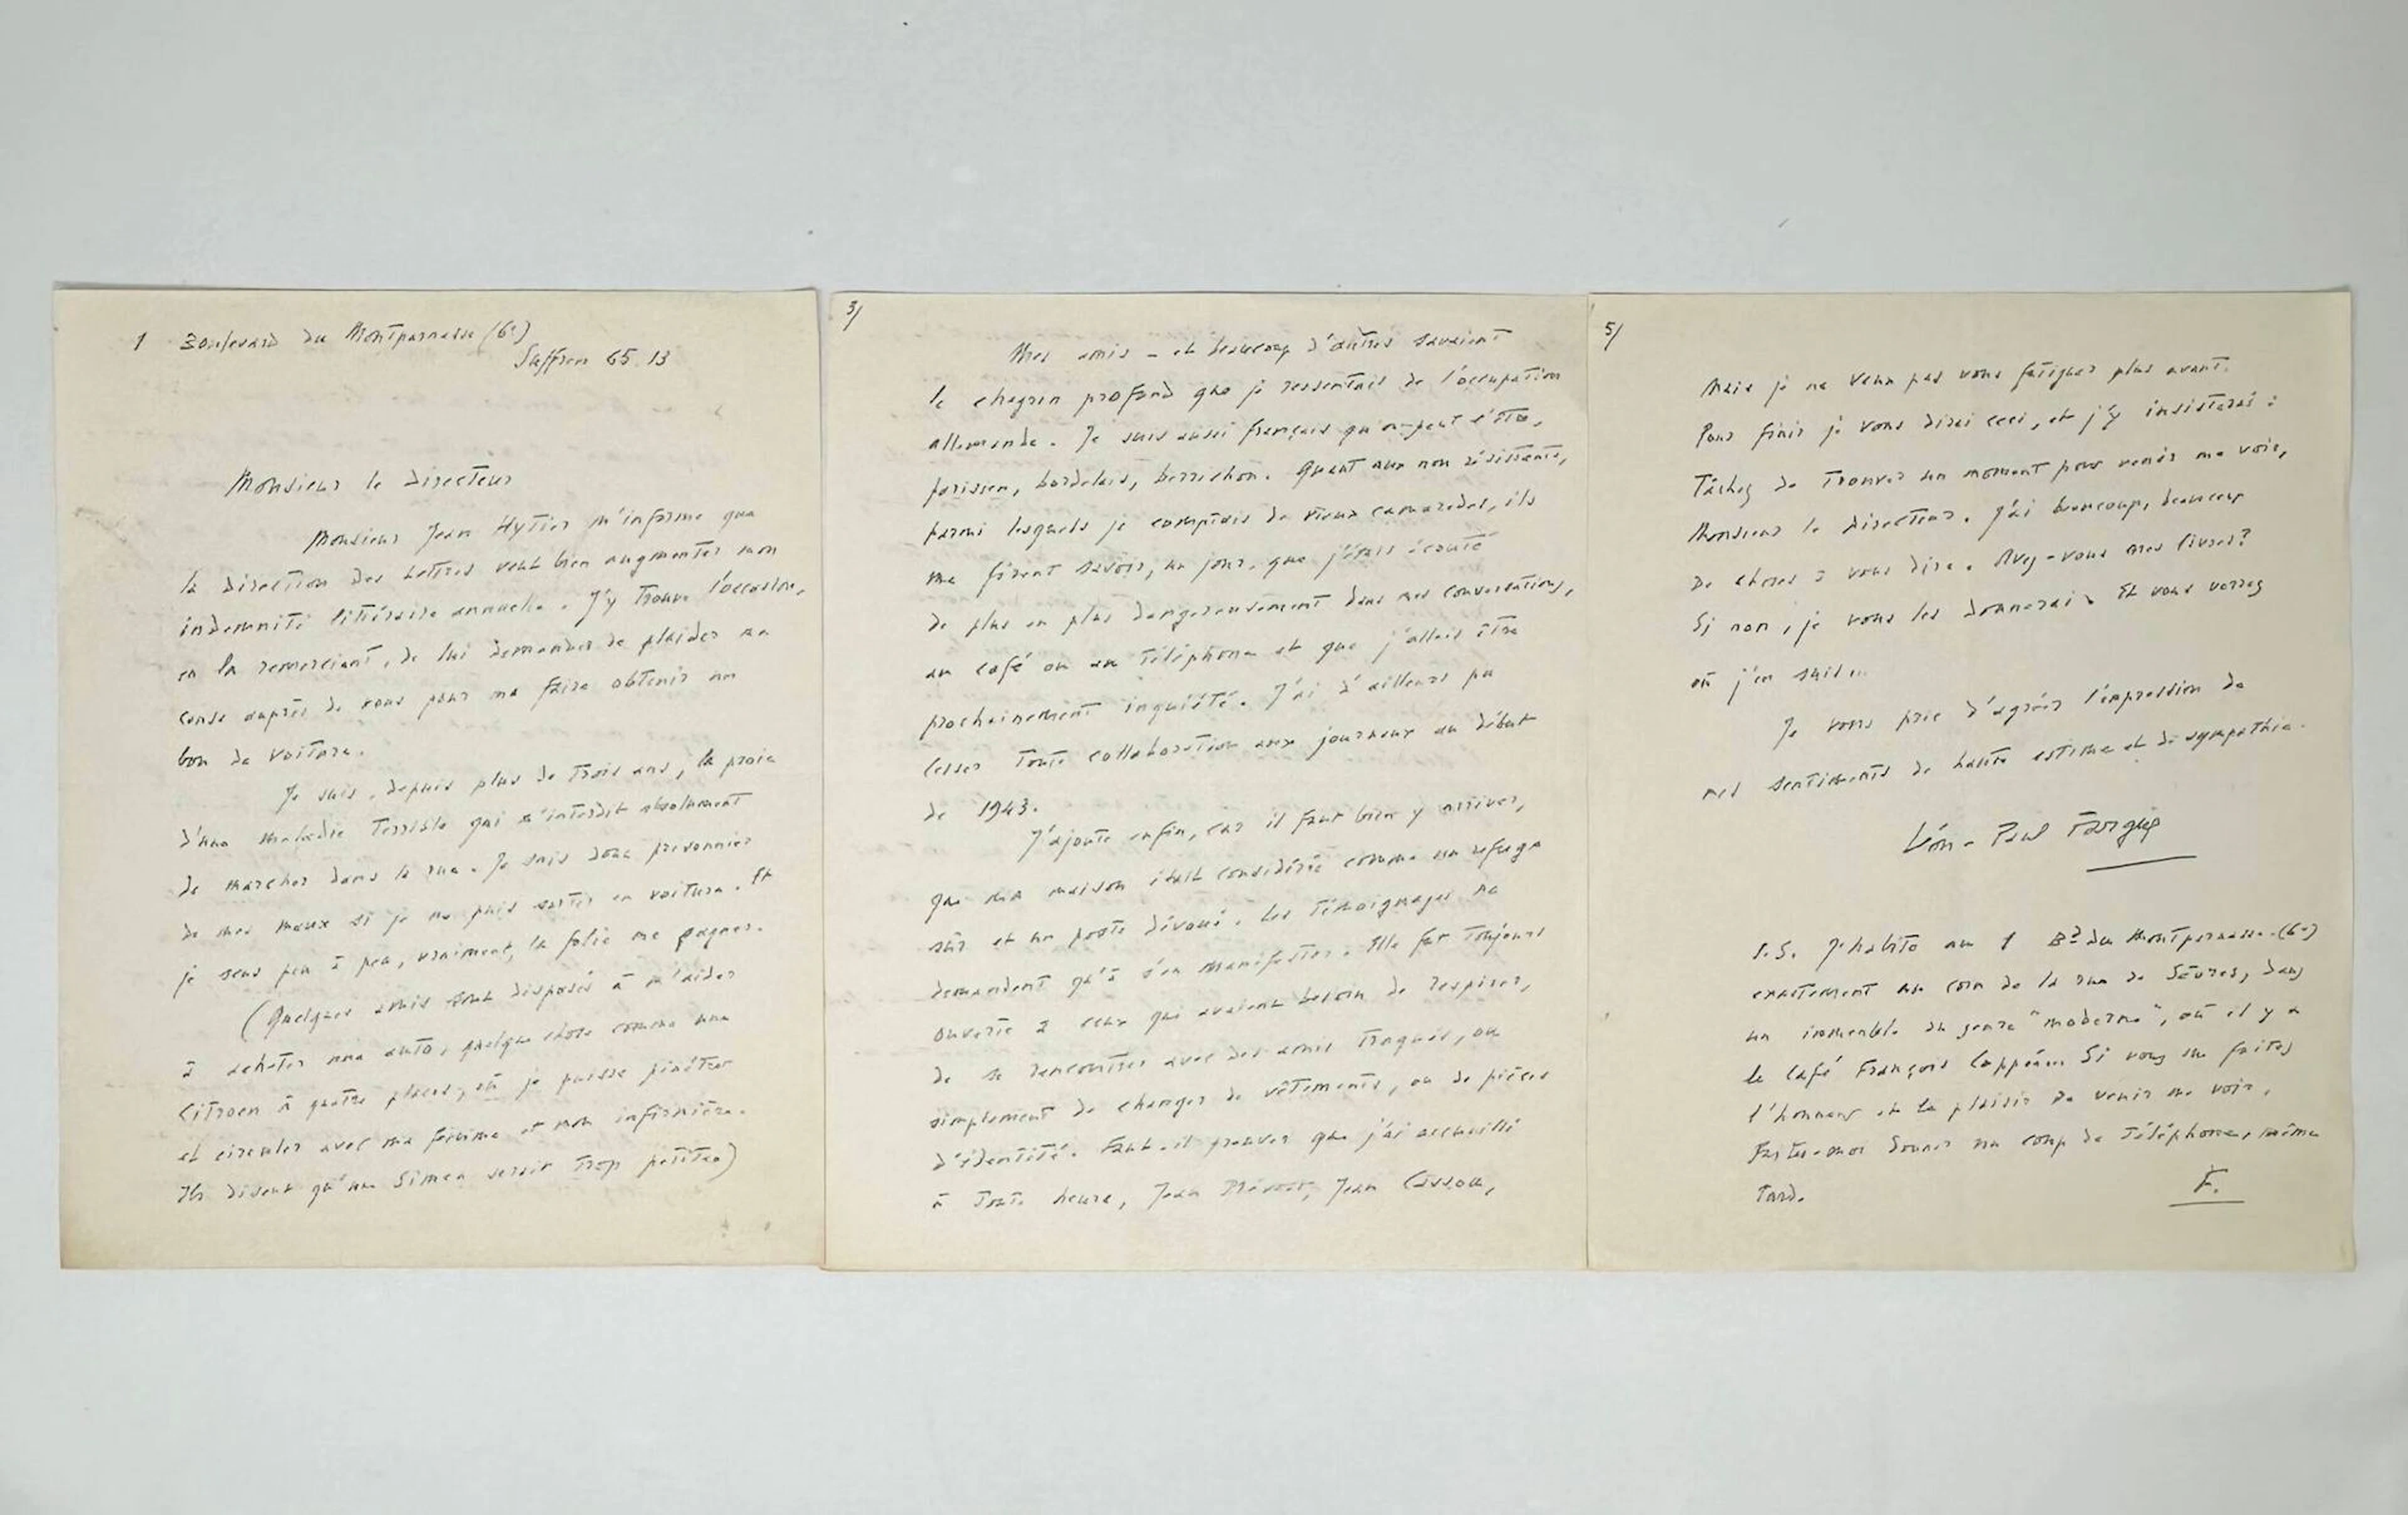 1 Boulevard du Montparnasse (6e)
Suffren 65.13
Monsieur le Directeur
Monsieur Jean Hytier m'informe que
la Direction des Lettres veut bien augmenter mon
indemnité littéraire annuelle. J'y trouve l'occasion,
en la remerciant, de lui demander de plaider ma
cause auprès de vous pour me faire obtenir un
bon de voiture.
Je suis, depuis plus de trois ans, la proie
d'une maladie terrible qui m'interdit absolument
de marcher dans la rue. Je suis donc prisonnier
de mes maux si je ne puis sortir en voiture. Et
je sens peu à peu, vraiment, la folie me gagner.
(Quelques amis sont disposés à m'aider
à acheter une auto, quelque chose comme une
Citroen à quatre places, où je puisse pénétrer
et circuler avec ma femme et mon infirmière.
Ils disent qu'une Simca serait trop petite.)
3/
Mes amis - et beaucoup d'autres savaient
le chagrin profond que je ressentais de l'occupation
allemande. Je suis aussi français qu'on peut l'être,
parisien, bordelais, berrichon. Quant aux non résistants,
parmi lesquels je comptais de vieux camarades, ils
me firent savoir, un jour, que j'étais écouté
de plus en plus dangereusement dans mes conversations,
au café ou au téléphone et que j'allais être
prochainement inquiété. J'ai d'ailleurs pu
cesser toute collaboration aux journaux au début
de 1943.
J'ajoute enfin, car il faut bien y arriver,
que ma maison était considérée comme un refuge
sûr et un poste dévoué. Les témoignages ne
demandent qu'à s'en manifester. Elle fut toujours
ouverte à ceux qui avaient besoin de respirer,
de se rencontrer avec des amis traqués, ou
simplement de changer de vêtements, ou de pièces
d'identité. Faut-il prouver que j'ai accueilli
à toute heure, Jean Prévost, Jean Cassou,
5/
Mais je ne veux pas vous fatiguer plus avant.
Pour finir je vous dirai ceci, et j'y insisterai :
Tâchez de trouver un moment pour venir me voir,
Monsieur le Directeur. J'ai beaucoup, beaucoup
de choses à vous dire. Avez-vous mes livres?
Si non, je vous les donnerai. Et vous verrez
où j'en suis...
Je vous prie d'agréer l'expression de
mes sentiments de haute estime et de sympathie.
Léon-Paul Fargue
P.S. J'habite au 1 Bd du Montparnasse (6e)
exactement au coin de la rue de Sèvres, dans
un immeuble du genre "moderne", où il y a
le Café François Coppée. Si vous me faites
l'honneur et le plaisir de venir me voir,
Faites-moi donner un coup de téléphone, même
tard.
F.